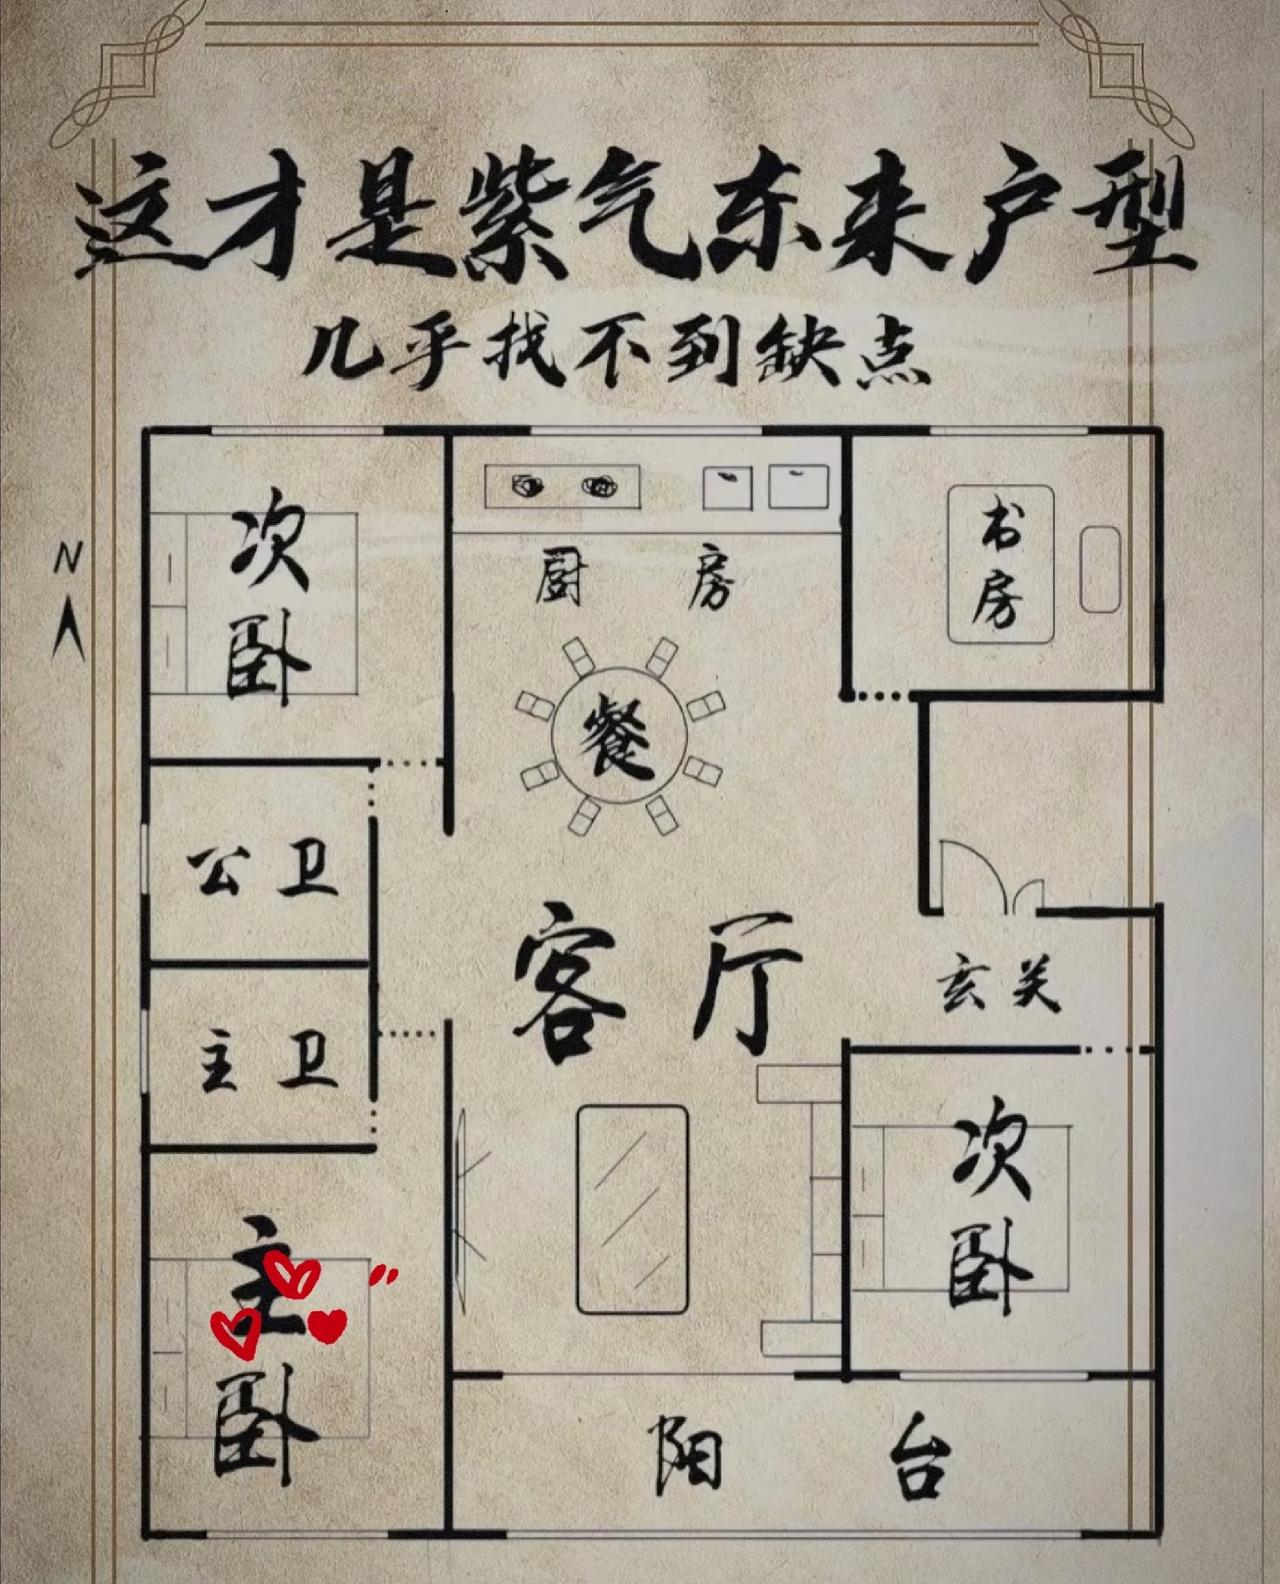 这才是紫气东来户型
几乎找不到缺点
次卧
厨房
书房
N
餐
公卫
客厅
玄关
主卫
次卧
主卧
阳台